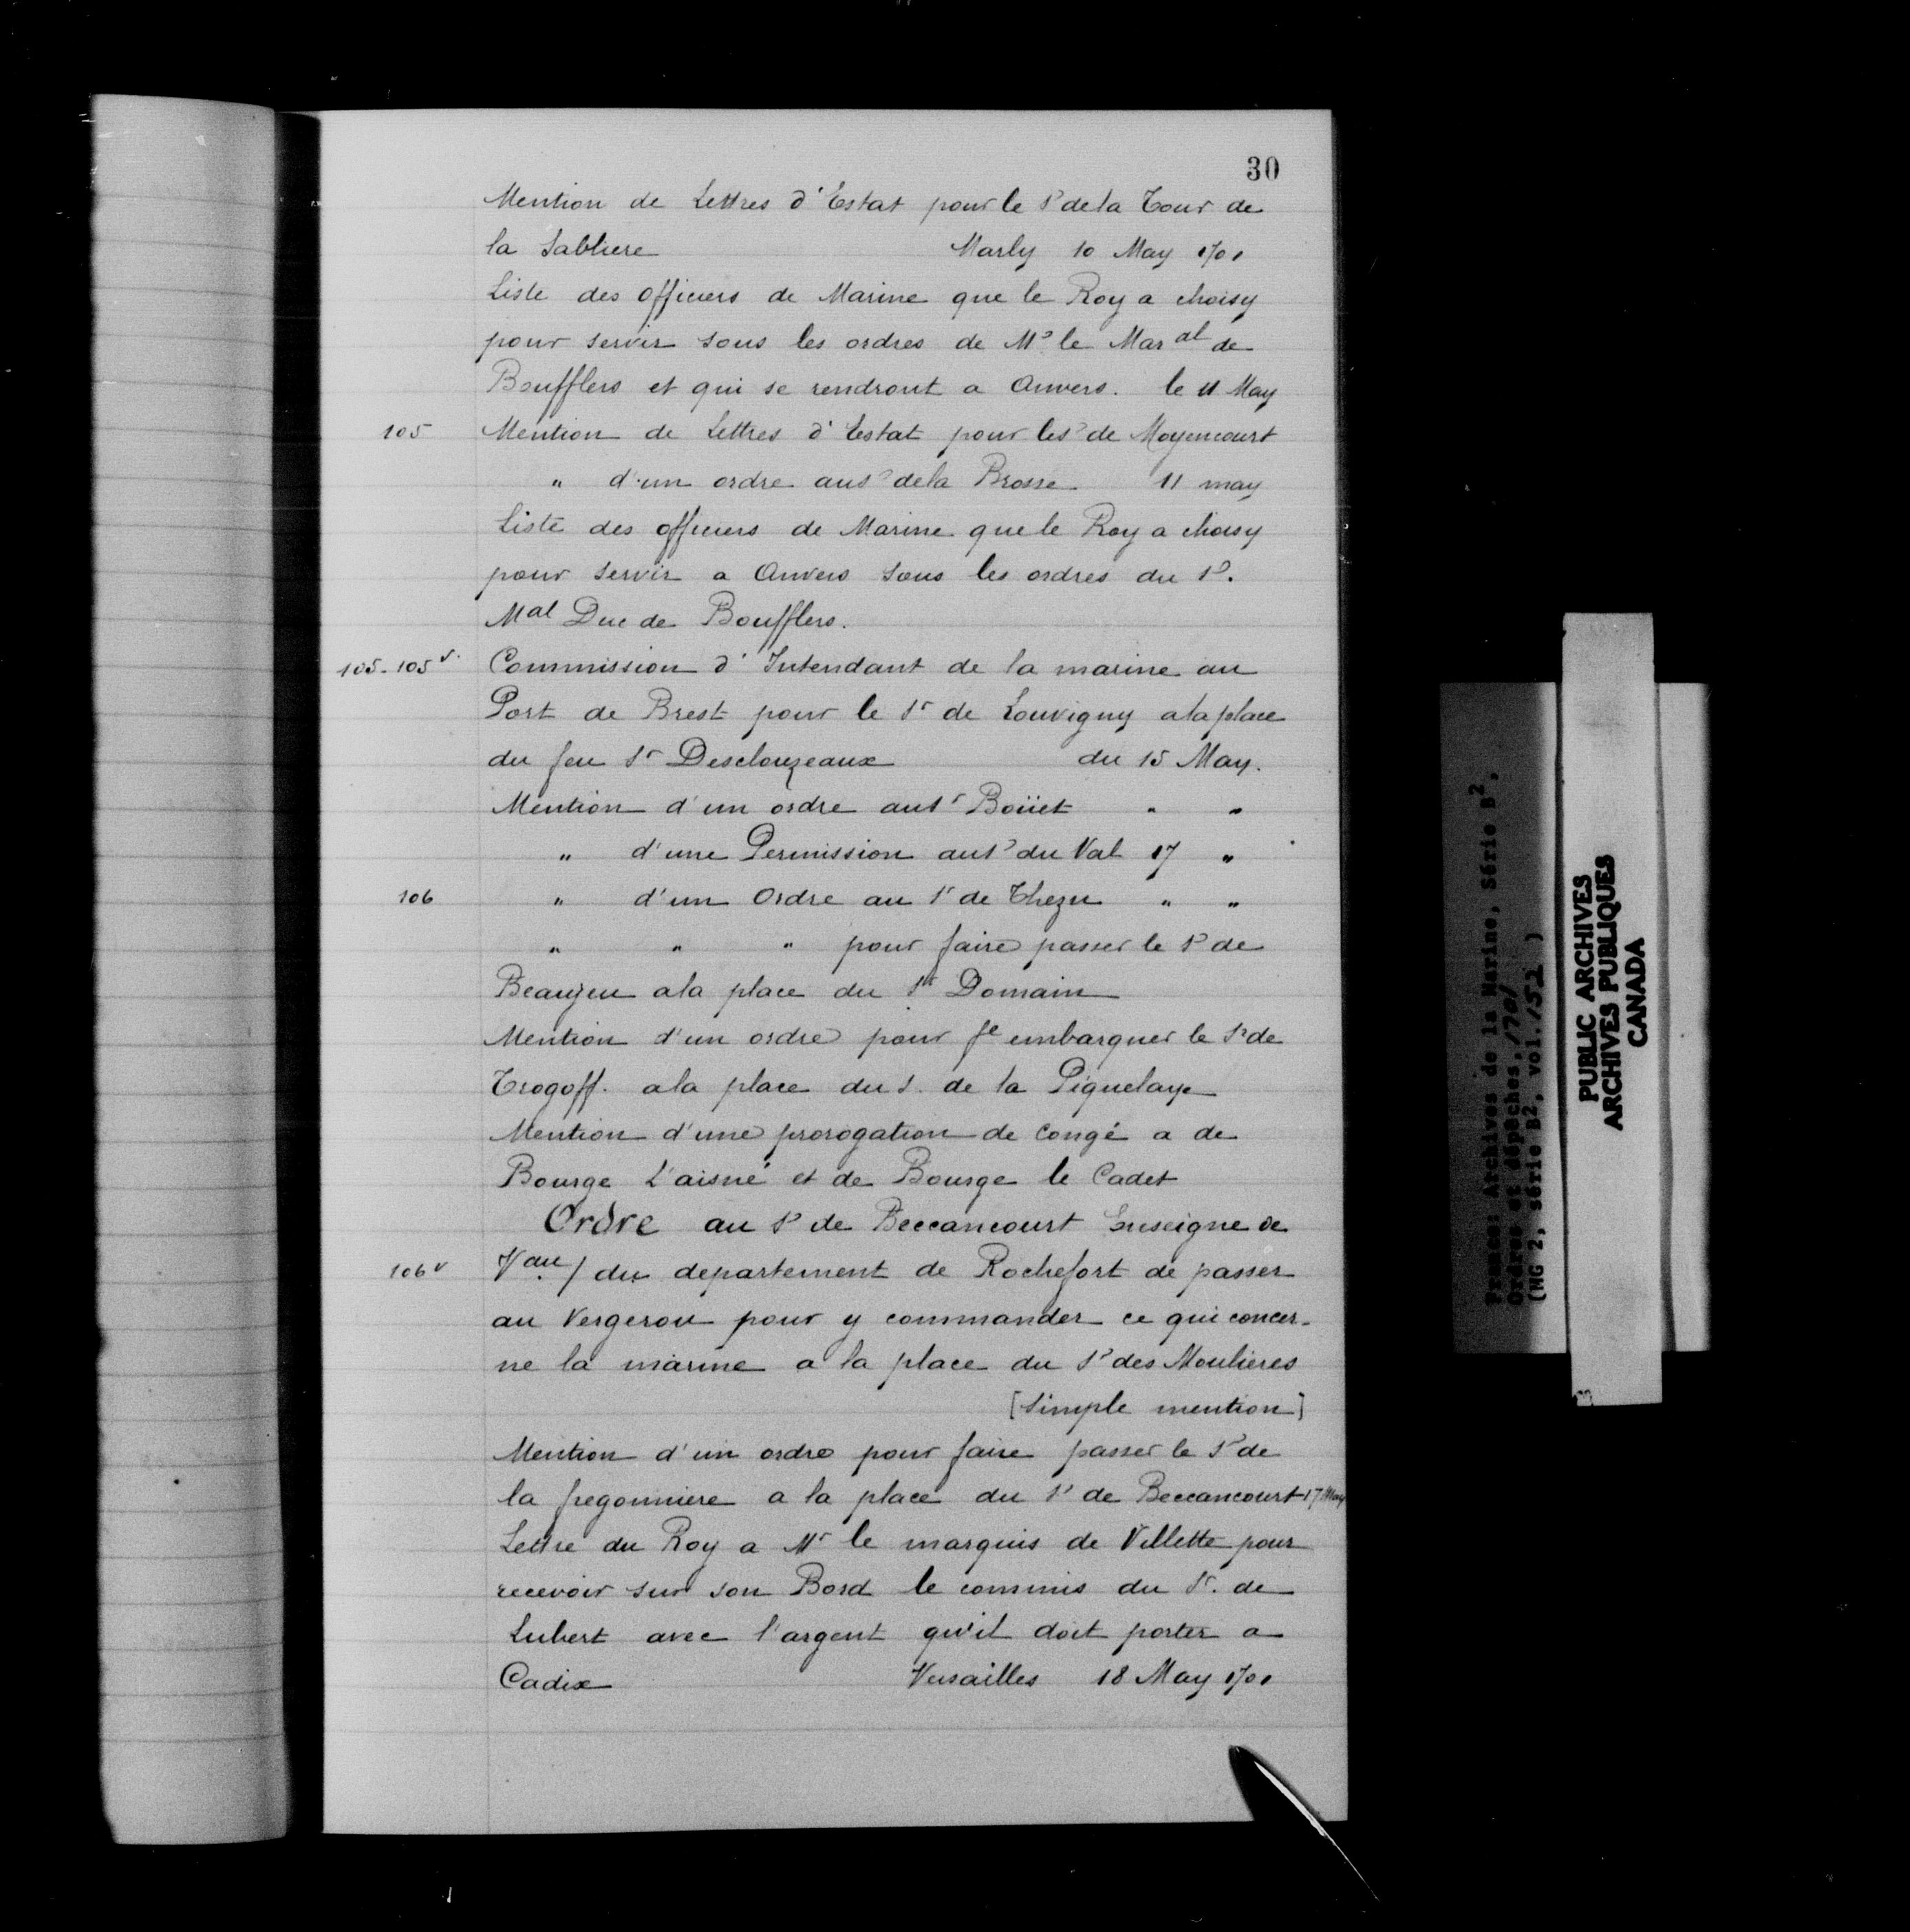 30
Mention de Lettres d'Estat pour le Sr de la Tour de
la Sabliere Marly 10 May 1701
Liste des officiers de Marine que le Roy a choisy
pour servir sous les ordres de Mr le Maral de
Boufflers et qui se rendront a Anvers. le 11 May
105 Mention de Lettres d'Estat pour le Sr de Moyencourt
" d'un ordre au Sr de la Brosse 11 may
Liste des officiers de Marine que le Roy a choisy
pour servir a Anvers sous les ordres du Sr.
Mal Duc de Boufflers.
105-105v. Commission d'Intendant de la marine au
Port de Brest pour le Sr de Louvigny a la place
du feu Sr Desclouzeaux du 15 May.
Mention d'un ordre au Sr Boüet " "
" d'une Permission au Sr du Val 17 "
106 " d'un Ordre au Sr de Thezu " "
" " " pour faire passer le Sr de
Beaujeu a la place du Sr Domain
Mention d'un ordre pour fe embarquer le Sr de
Trogoff. a la place du S. de la Piguelaye
Mention d'une prorogation de Congé a de
Bourge L'aisné et de Bourge le Cadet
Ordre au Sr de Beccancourt Enseigne de
106v Vau / du departement de Rochefort de passer
au Vergerou pour y commander ce qui concer-
ne la marine a la place du Sr des Moulieres
[Simple mention]
Mention d'un ordre pour faire passer le Sr de
la fregonniere a la place du Sr de Beccancourt 17 May
Lettre du Roy a Mr le marquis de Villette pour
recevoir sur son Bord le commis du Sr. de
Lubert avec l'argent qu'il doit porter a
Cadix Versailles 18 May 1701
France: Archives de la Marine, Série B2,
Ordres et dépêches, 1701
(MG 2, série B2, vol. 152 )
PUBLIC ARCHIVES
ARCHIVES PUBLIQUES
CANADA